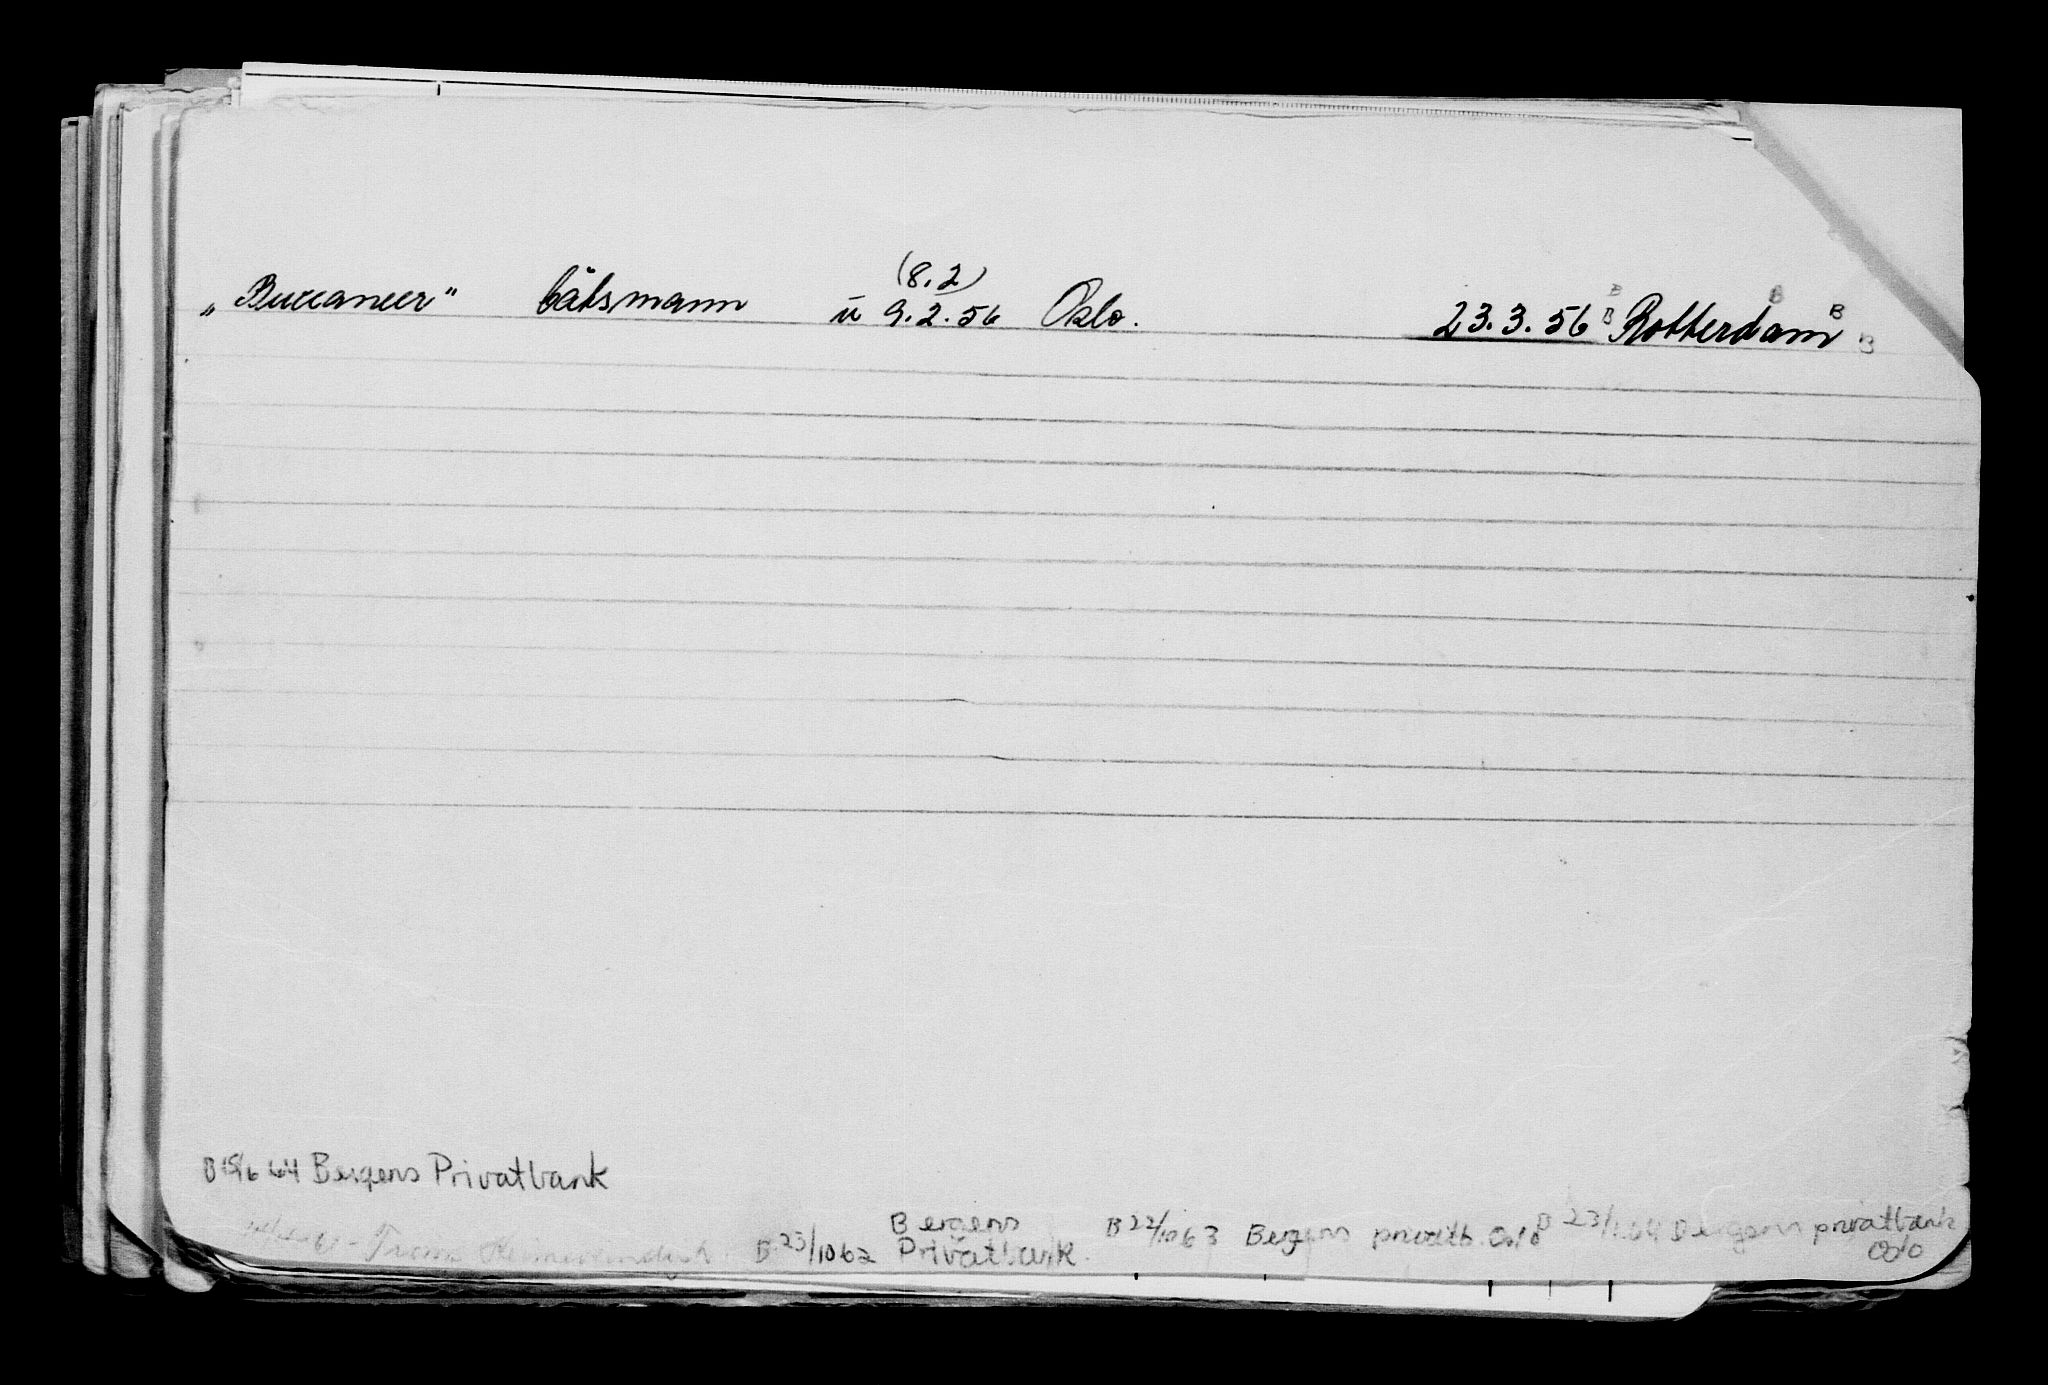 (8.2)
„Buccaneer" båtsmann u 9.2.56 Oslo. 23.3.56 Rotterdam
B B B B B
B 15/6 64 Bergens Privatbank
B 23/10 62 Bergens Privatbank.
B 22/10 63 Bergens privatb. Oslo
B 23/ 64 Bergens privatbank Oslo